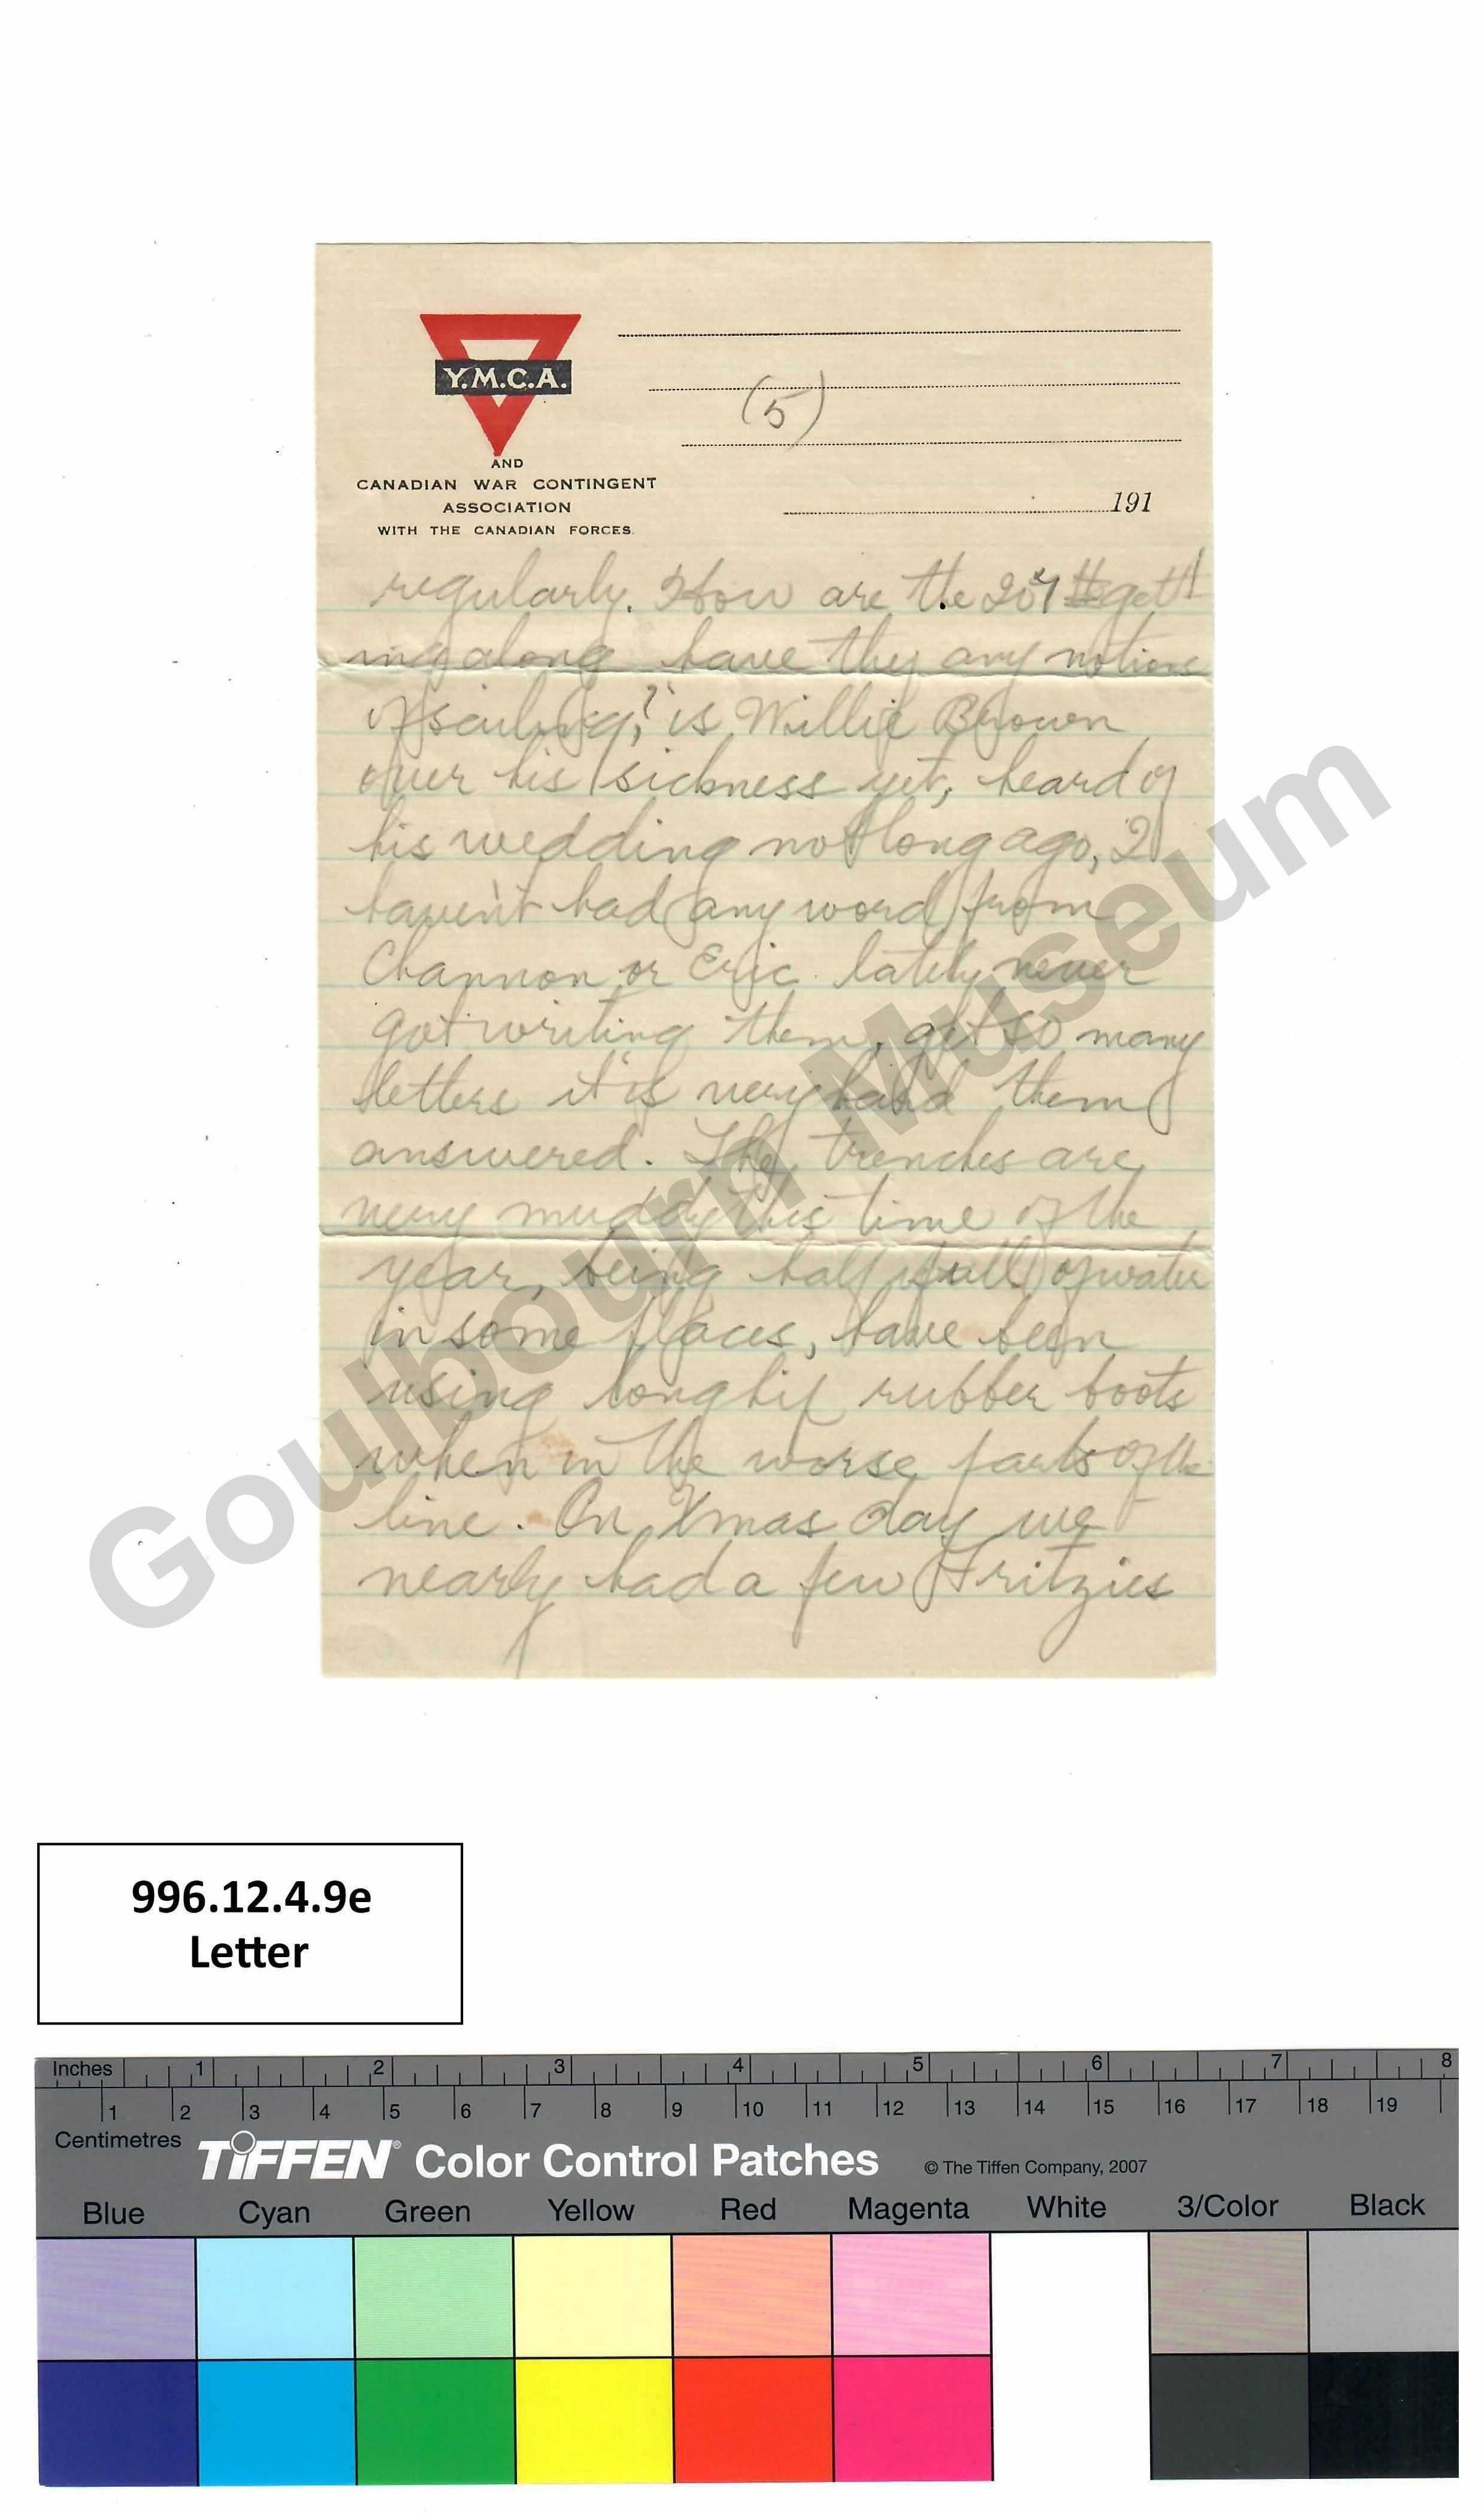 Y.M.C.A.
AND
CANADIAN WAR CONTINGENT
ASSOCIATION
WITH THE CANADIAN FORCES.
(5)
191
regularly. How are the 207th gett
ing along have they any notions
of sailing,? is Willie Brown
over his sickness yet, heard of
his wedding not long ago, I
haven't had any word from
Channon or Eric lately never
got writing them, get so many
letters it's very hard them
answered. The trenches are
very muddy this time of the
year, being half full of water
in some places, have been
using long hip rubber boots
when in the worse parts of the
line. On Xmas day we
nearly had a few Fritzies
Goulbourn Museum
996.12.4.9e
Letter
Inches 1 2 3 4 5 6 7 8
1 2 3 4 5 6 7 8 9 10 11 12 13 14 15 16 17 18 19
Centimetres
TIFFEN® Color Control Patches © The Tiffen Company, 2007
Blue Cyan Green Yellow Red Magenta White 3/Color Black